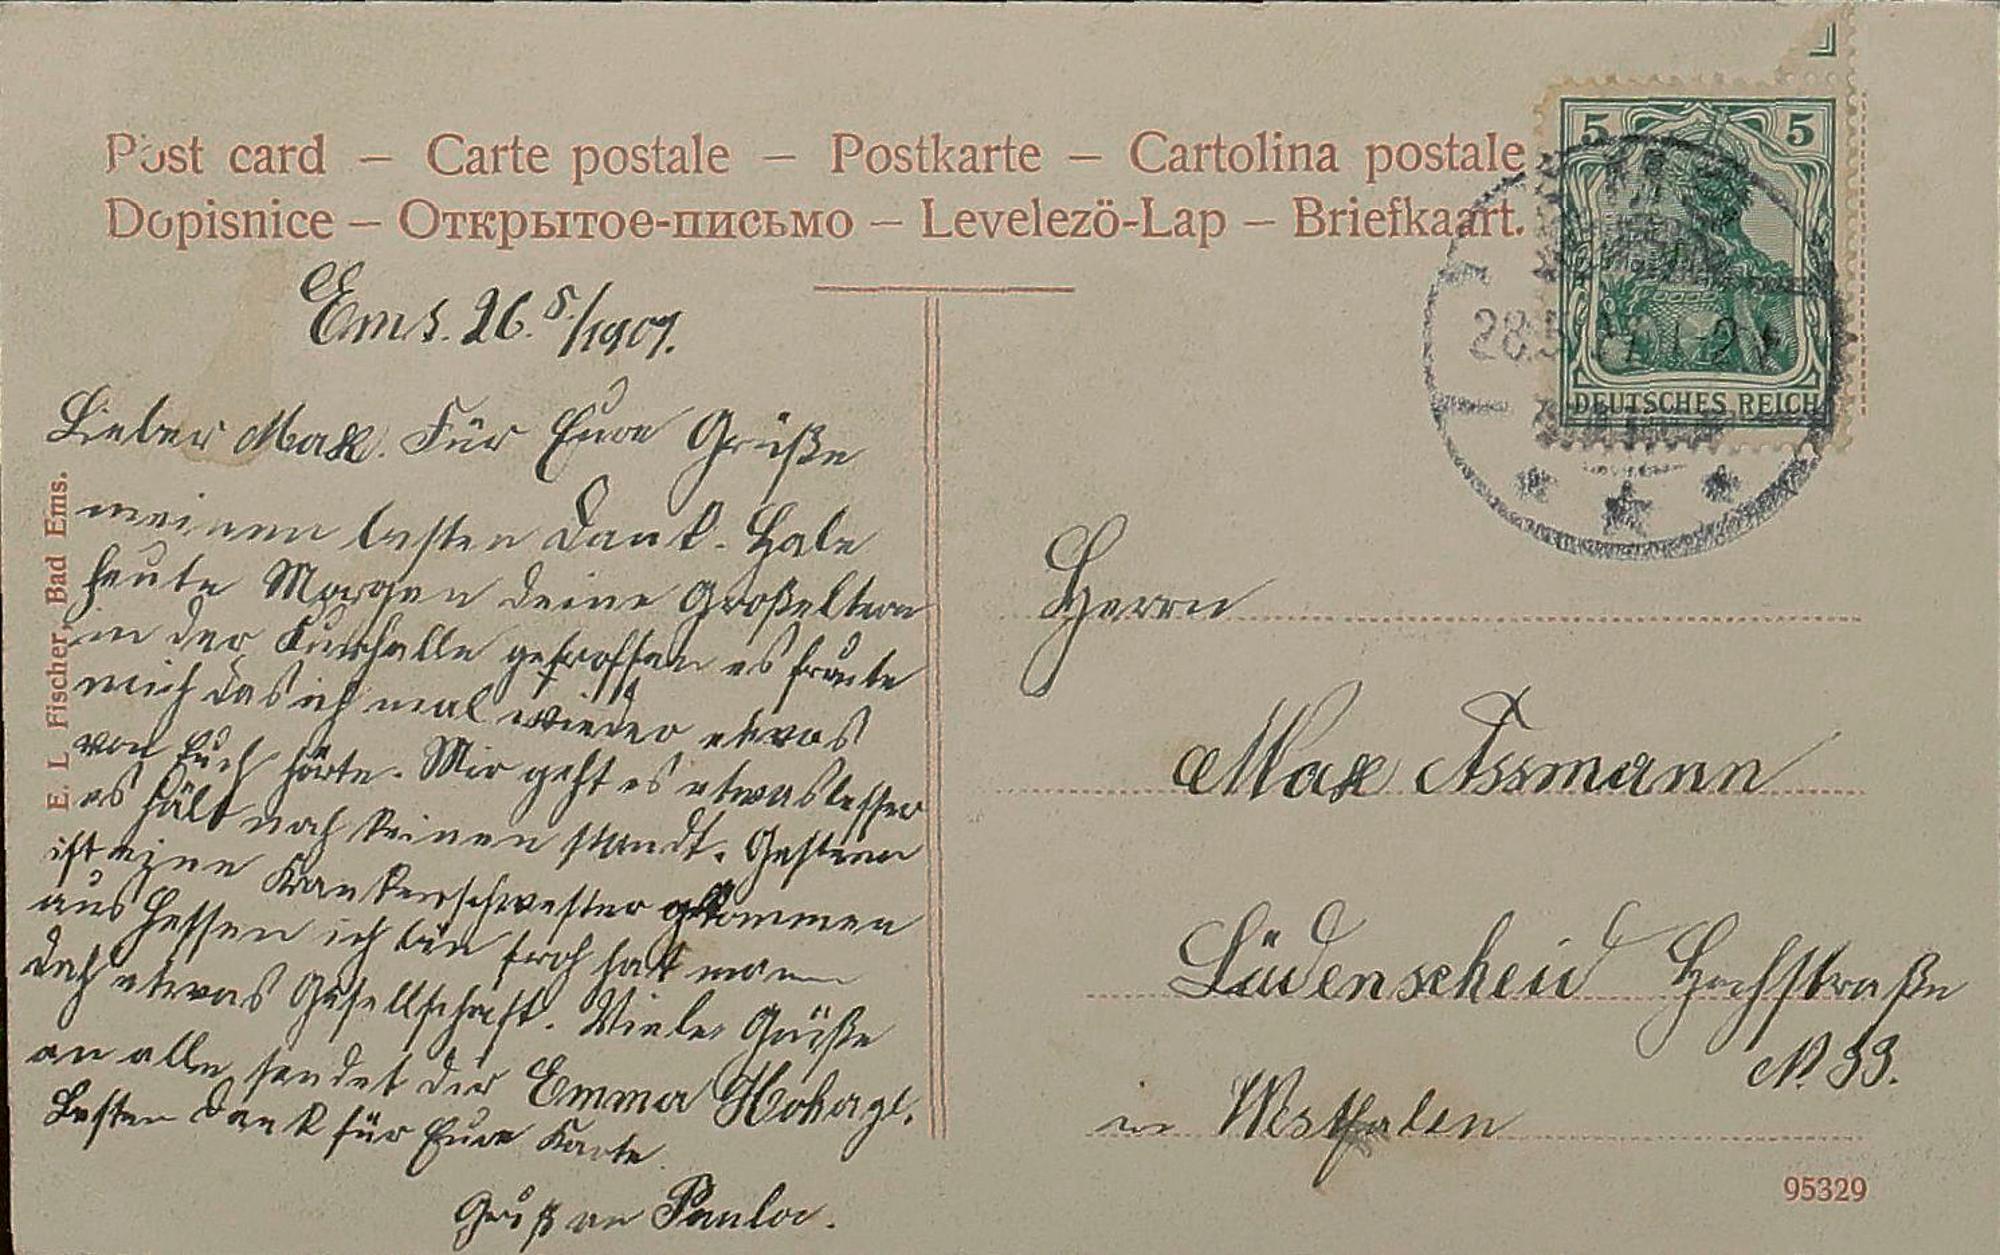 Post card – Carte postale – Postkarte – Cartolina postale
Dopisnice – Открытое-письмо – Levelezö-Lap – Briefkaart.
5 5
DEUTSCHES REICH
28.5
1-2
Ems. 26.5./1907.
Lieber Max. Für Eure Grüße
meinen besten Dank. Habe
heute Morgen deine Großeltern
in der Kurhalle getroffen es freute
mich das ich mal wieder etwas
von Euch hörte. Mir geht es etwas besser
es hält noch keinen standt. Gestern
ist eine Krankenschwester gekommen
aus Hessen ich bin froh hat man
doch etwas Gesellschaft. Viele Grüße
an alle sendet dir Emma Hohage.
Besten Dank für Eure Karte.
Gruß an Paula.
E. L Fischer, Bad Ems.
Herrn
Max Assmann
Lüdenscheid Hochstraße
N. 33.
in Westfalen
95329